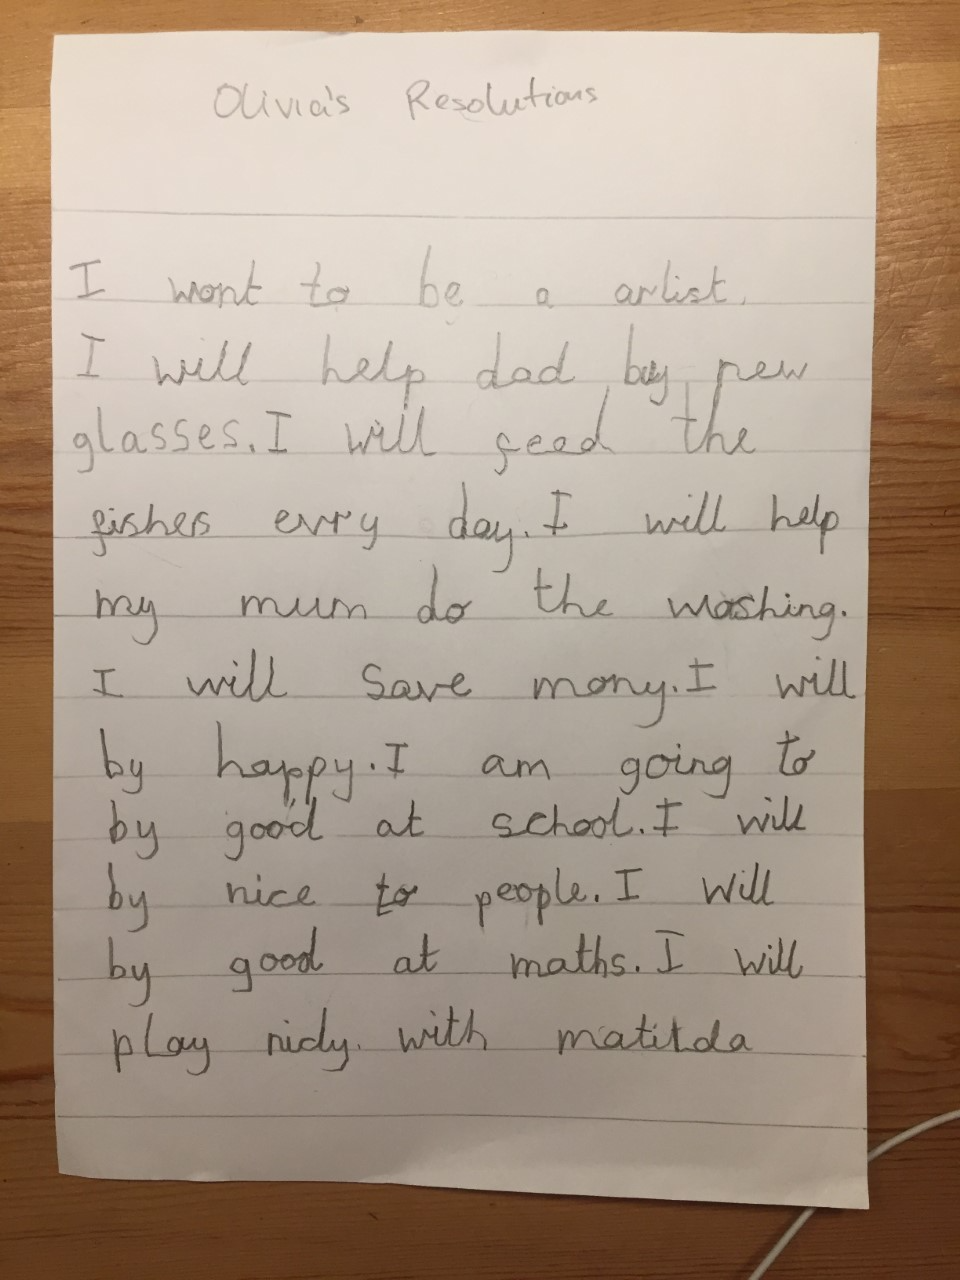 Olivia's Resolutions
I wont to be a artist.
I will help dad buy new
glasses. I will feed the
fishes evry day. I will help
my mum do the washing.
I will save mony. I will
by happy. I am going to
by good at school. I will
by nice to people. I will
by good at maths. I will
play nicly. with matilda